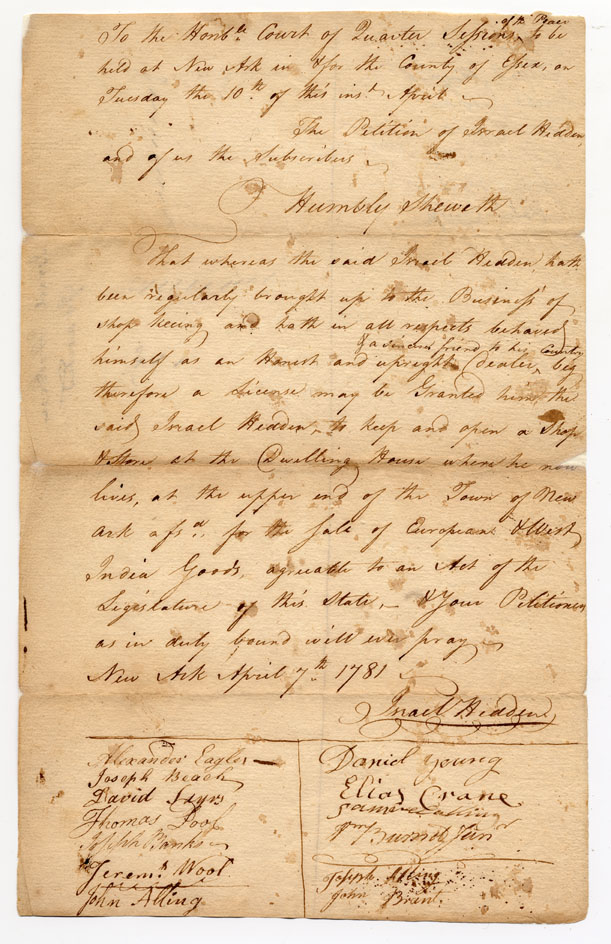 of the Peace
To the Honble Court of Quarter Sessions, to be
held at New Ark in & for the County of Essex, on
Tuesday the 10th of this inst April
The Petition of Israel Hedden,
and of us the Subscribers
Humbly Sheweth
That whereas the said Israel Hedden, hath
been regularly brought up to the Business of
shop keeing and hath in all respects behaved
& a sincere friend to his Country
himself as an Honest and upright Dealer, beg
therefore a License may be Granted him, the
said Israel Hedden, to keep and open a Shop
& Store at the Dwelling House where he now
lives, at the upper end of the Town of New
Ark afsd, for the Sale of European & West
India Goods, agreeable to an Act of the
Legislature of this State, — & Your Petitioners
as in duty bound will ever pray
New Ark April 7th 1781
Israel Hedden
Alexander Eagles
Joseph Beach
David
Thomas
Joseph Banks
Jerem Wool
John Alling
Daniel Young
Elias Crane
Alling
Wm Burnet Junr
Joseph Alling
John